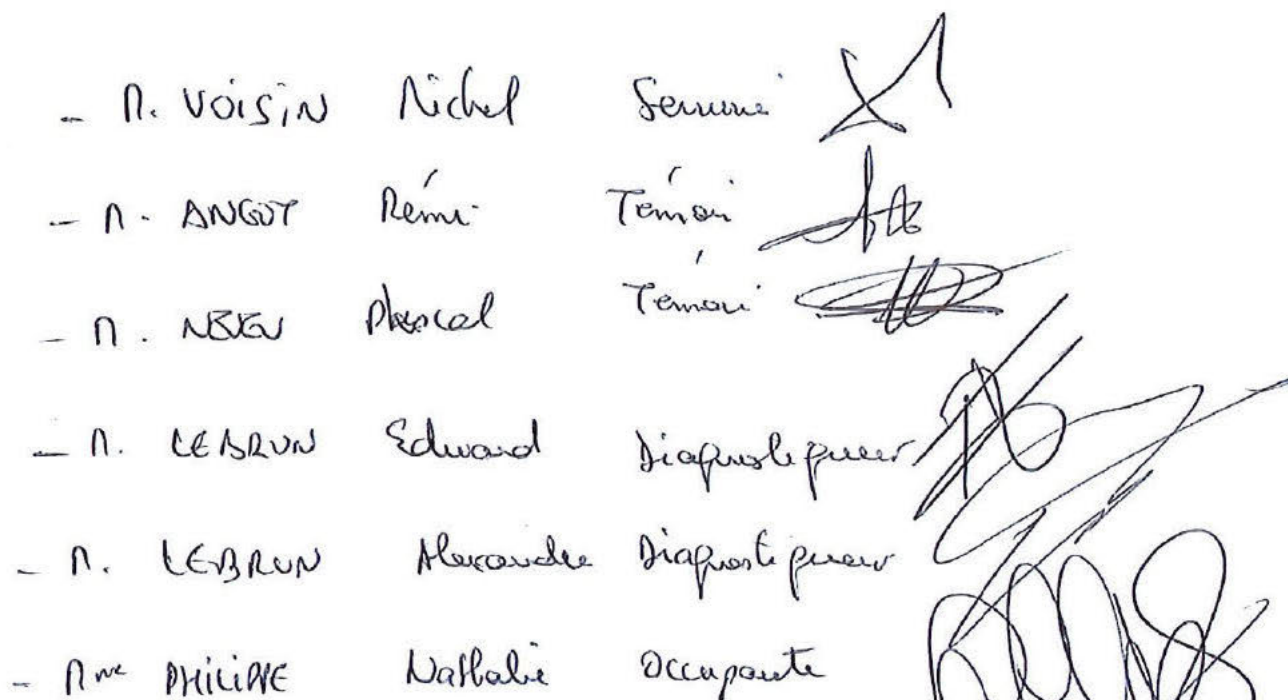 - M. VOISIN Michel Serrurier
- M. ANGOT Rémi Témoin
- M. NEVEU Pascal Témoin
- M. LEBRUN Edward Diagnostiqueur
- M. LEBRUN Alexandre Diagnostiqueur
- Mme PHILIPPE Nathalie Occupante